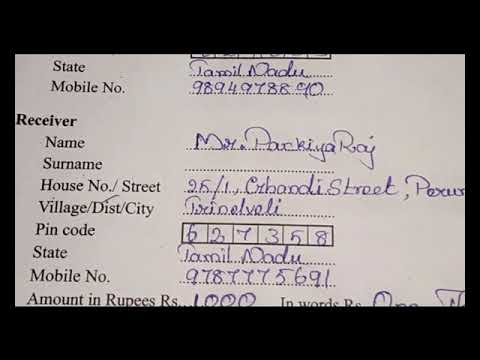 State Tamil Nadu
Mobile No. 9894978890
Receiver
Name Mr. PackiyaRaj
Surname
House No./ Street 25/1, Erbandi Street,
Village/Dist/City Trinelveli
Pin code 627358
State Tamil Nadu
Mobile No. 9787775691
Amount in Rupees Rs. 1000 In words Rs. One